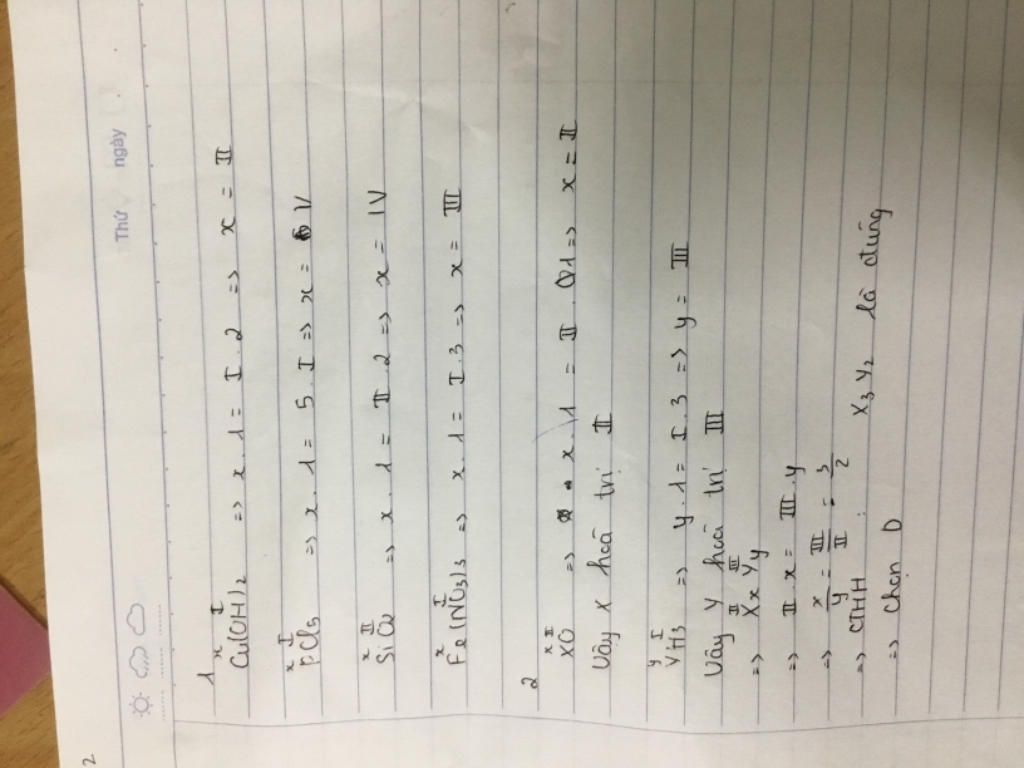 2
Thứ ngày
1
x I
Cu(OH)2 => x . 1 = I . 2 => x = II
x I
PCl5 => x . 1 = 5 . I => x = V
x II
SiO2 => x . 1 = II . 2 => x = IV
x I
Fe(NO3)3 => x . 1 = I . 3 => x = III
2
x II
XO => x . 1 = II . 1 => x = II
Vây X hoá trị II
y I
YH3 => y . 1 = I . 3 => y = III
Vây Y hoá trị III
II III
=> Xx Yy
=> II x = III . y
=> x/y = III/II = 3/2
=> CTHH : X3Y2 là đúng
=> chọn D